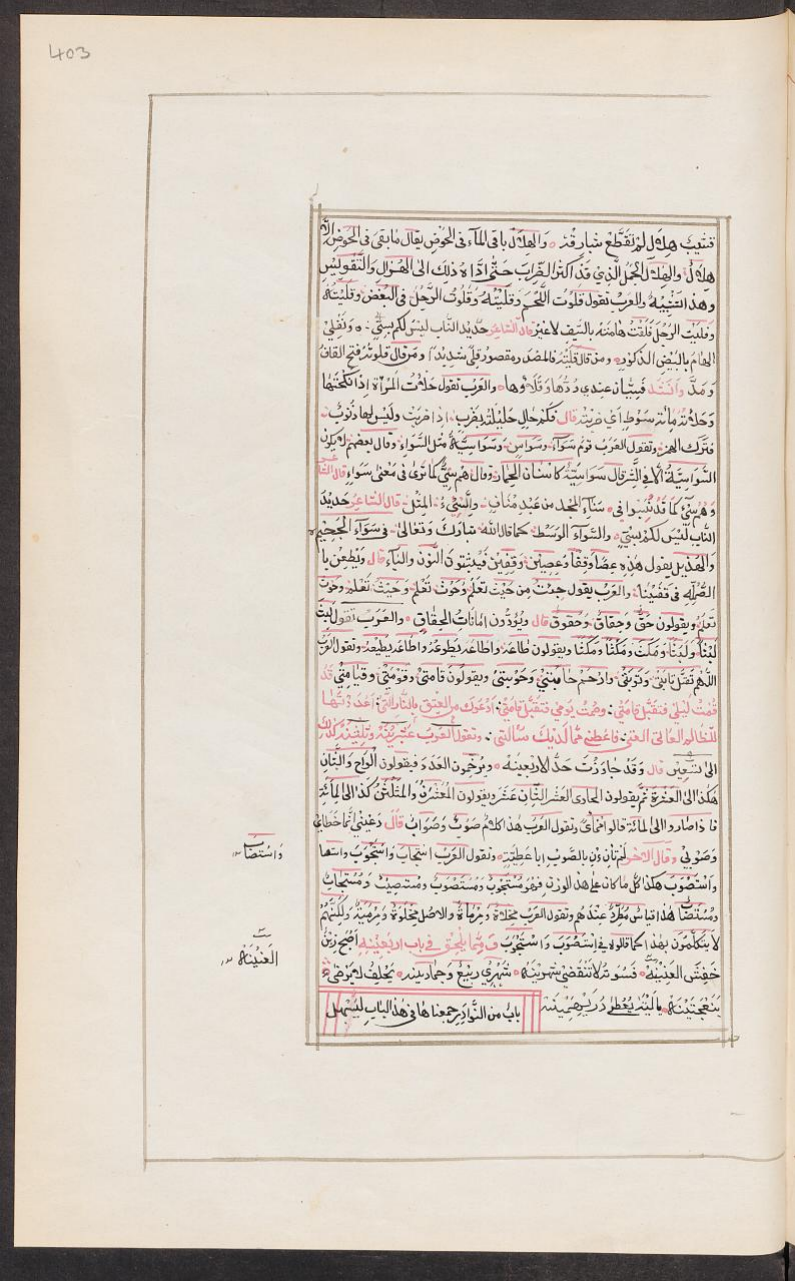 403
هِلَال لم تقطع شبارقه والهلال باقى المآء فى الحوض يقال مابقى فى الحوض الا
هلال والهلال الجمل الذى قد اكثر الضراب حتى اداه ذلك الى الهزال والتقويس
وهذا التشبيه والعرب تقول قلوت اللحم وقليته وقلوت الرجل فى البغض وقليته
وفليت الرجل فلقت هامته بالسيف لاغير قال الشاعر حديد الناب ليس لكم بسىّ ونفلى
الهام بالبيض الذكور ومن قال قليته فالمصدر مقصور قلى شديدا ومن قال قلوته فتح القاف
ومدّ وانشد عندى والعرب تقول حلأت المرأة اذا نكحتها
وحلأته مائة سوط اى ضربته قال فكم حالى حليلته بضرب اذا ضربت وليس لها ذنوب
فترك الهمز وتقول العرب قوم سوآء وسواس وسواسية مثل السوآء وقال بعضهم لايكون
السواسية الا فى الشر قال سواسية كاسنان الحمار وقال هم سىّ كما ترى فى معنى سوآء قال الشاعر
وهم سىّ كما قد نسبوا فى سنآء المجد من عبد مناف والسىّ المثل قال الشاعر حديد
الناب ليس لكم بسىّ والسوآء الوسط كما قال الله تبارك وتعالى فى سوآء الجحيم
والهذيل يقول هذه عصا وقفا وعصيين وقفيين فيثبتون النون واليآء قال ويطعن با
فى قفينا والعرب يقول جئت من حيث تعلم وحوث تعلم وحيث تعلم وحوث
تعلم ويقولون حق وحقاق وحقوق قال ويؤدون امانات الحقاق والعرب تقول لبث
لبثا ولبثا ومكث ومكثا ومكثا ويقولون طاعة واطاعه يطوعه واطاعه يطيعه وتقول العرب
اللهم تقبل تابتى وتوبتى وارحم حابتى وحوبتى ويقولون قامتى وقومتى وقيامتى قد
قمت ليلى فتقبل قامتى وصمت يومى فتقبل صامتى ادعوك من العتق بالنار التى اعددتها
للظالم العاتى العتى فاعطنى مما لديك سألتى وتقول العرب عشرينه وثلثينه كذلك
الى تسعين قال وقد جاوزت حد الاربعينه ويرخمون العدد فيقولون الواح والثان
هكذا الى العشرة ثم يقولون الحادى العشر الثان عشر ويقولون المعشرن والمثلثن كذا الى المائة
فاذا صاروا الى المائة قالوا وتقول العرب هذا كلام صوب وصواب قال دعينى انما خطاى
وصوبى وقال الآخر بالصوب اباعطية وتقول العرب استجاب واستجوب واستها
واستصوب هكذا كل ماكان على هذا الوزن فهو مستجوب ومستصوب ومستصيب ومستجاب
ومستصاب هذا قياس مطرد عندهم وتقول العرب مخلاة ومرماة والاصل مخلوة ومرمية ولكنهم
لايتكلمون بهذا كما قالوه فى استصوب واستجوب ومما يلحق فى باب اربعينه اصبح زين
خفش العينينه فسوته لا تنقضى شهرينه شهرى ربيع وجمادينه يحلف لا يرضى
بنعجتينه ياليته يعطى دريهمينه باب من النوادر جمعناها فى هذا الباب ليسهل
واستصاب
العينينة